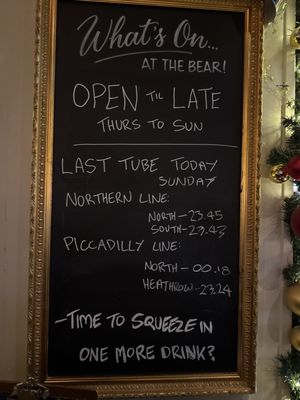 What's On...
AT THE BEAR!
OPEN TIL LATE
THURS TO SUN
LAST TUBE TODAY
SUNDAY
NORTHERN LINE:
NORTH - 23.45
SOUTH - 23.43
PICCADILLY LINE:
NORTH - 00.18
HEATHROW - 23.24
- TIME TO SQUEEZE IN
ONE MORE DRINK?